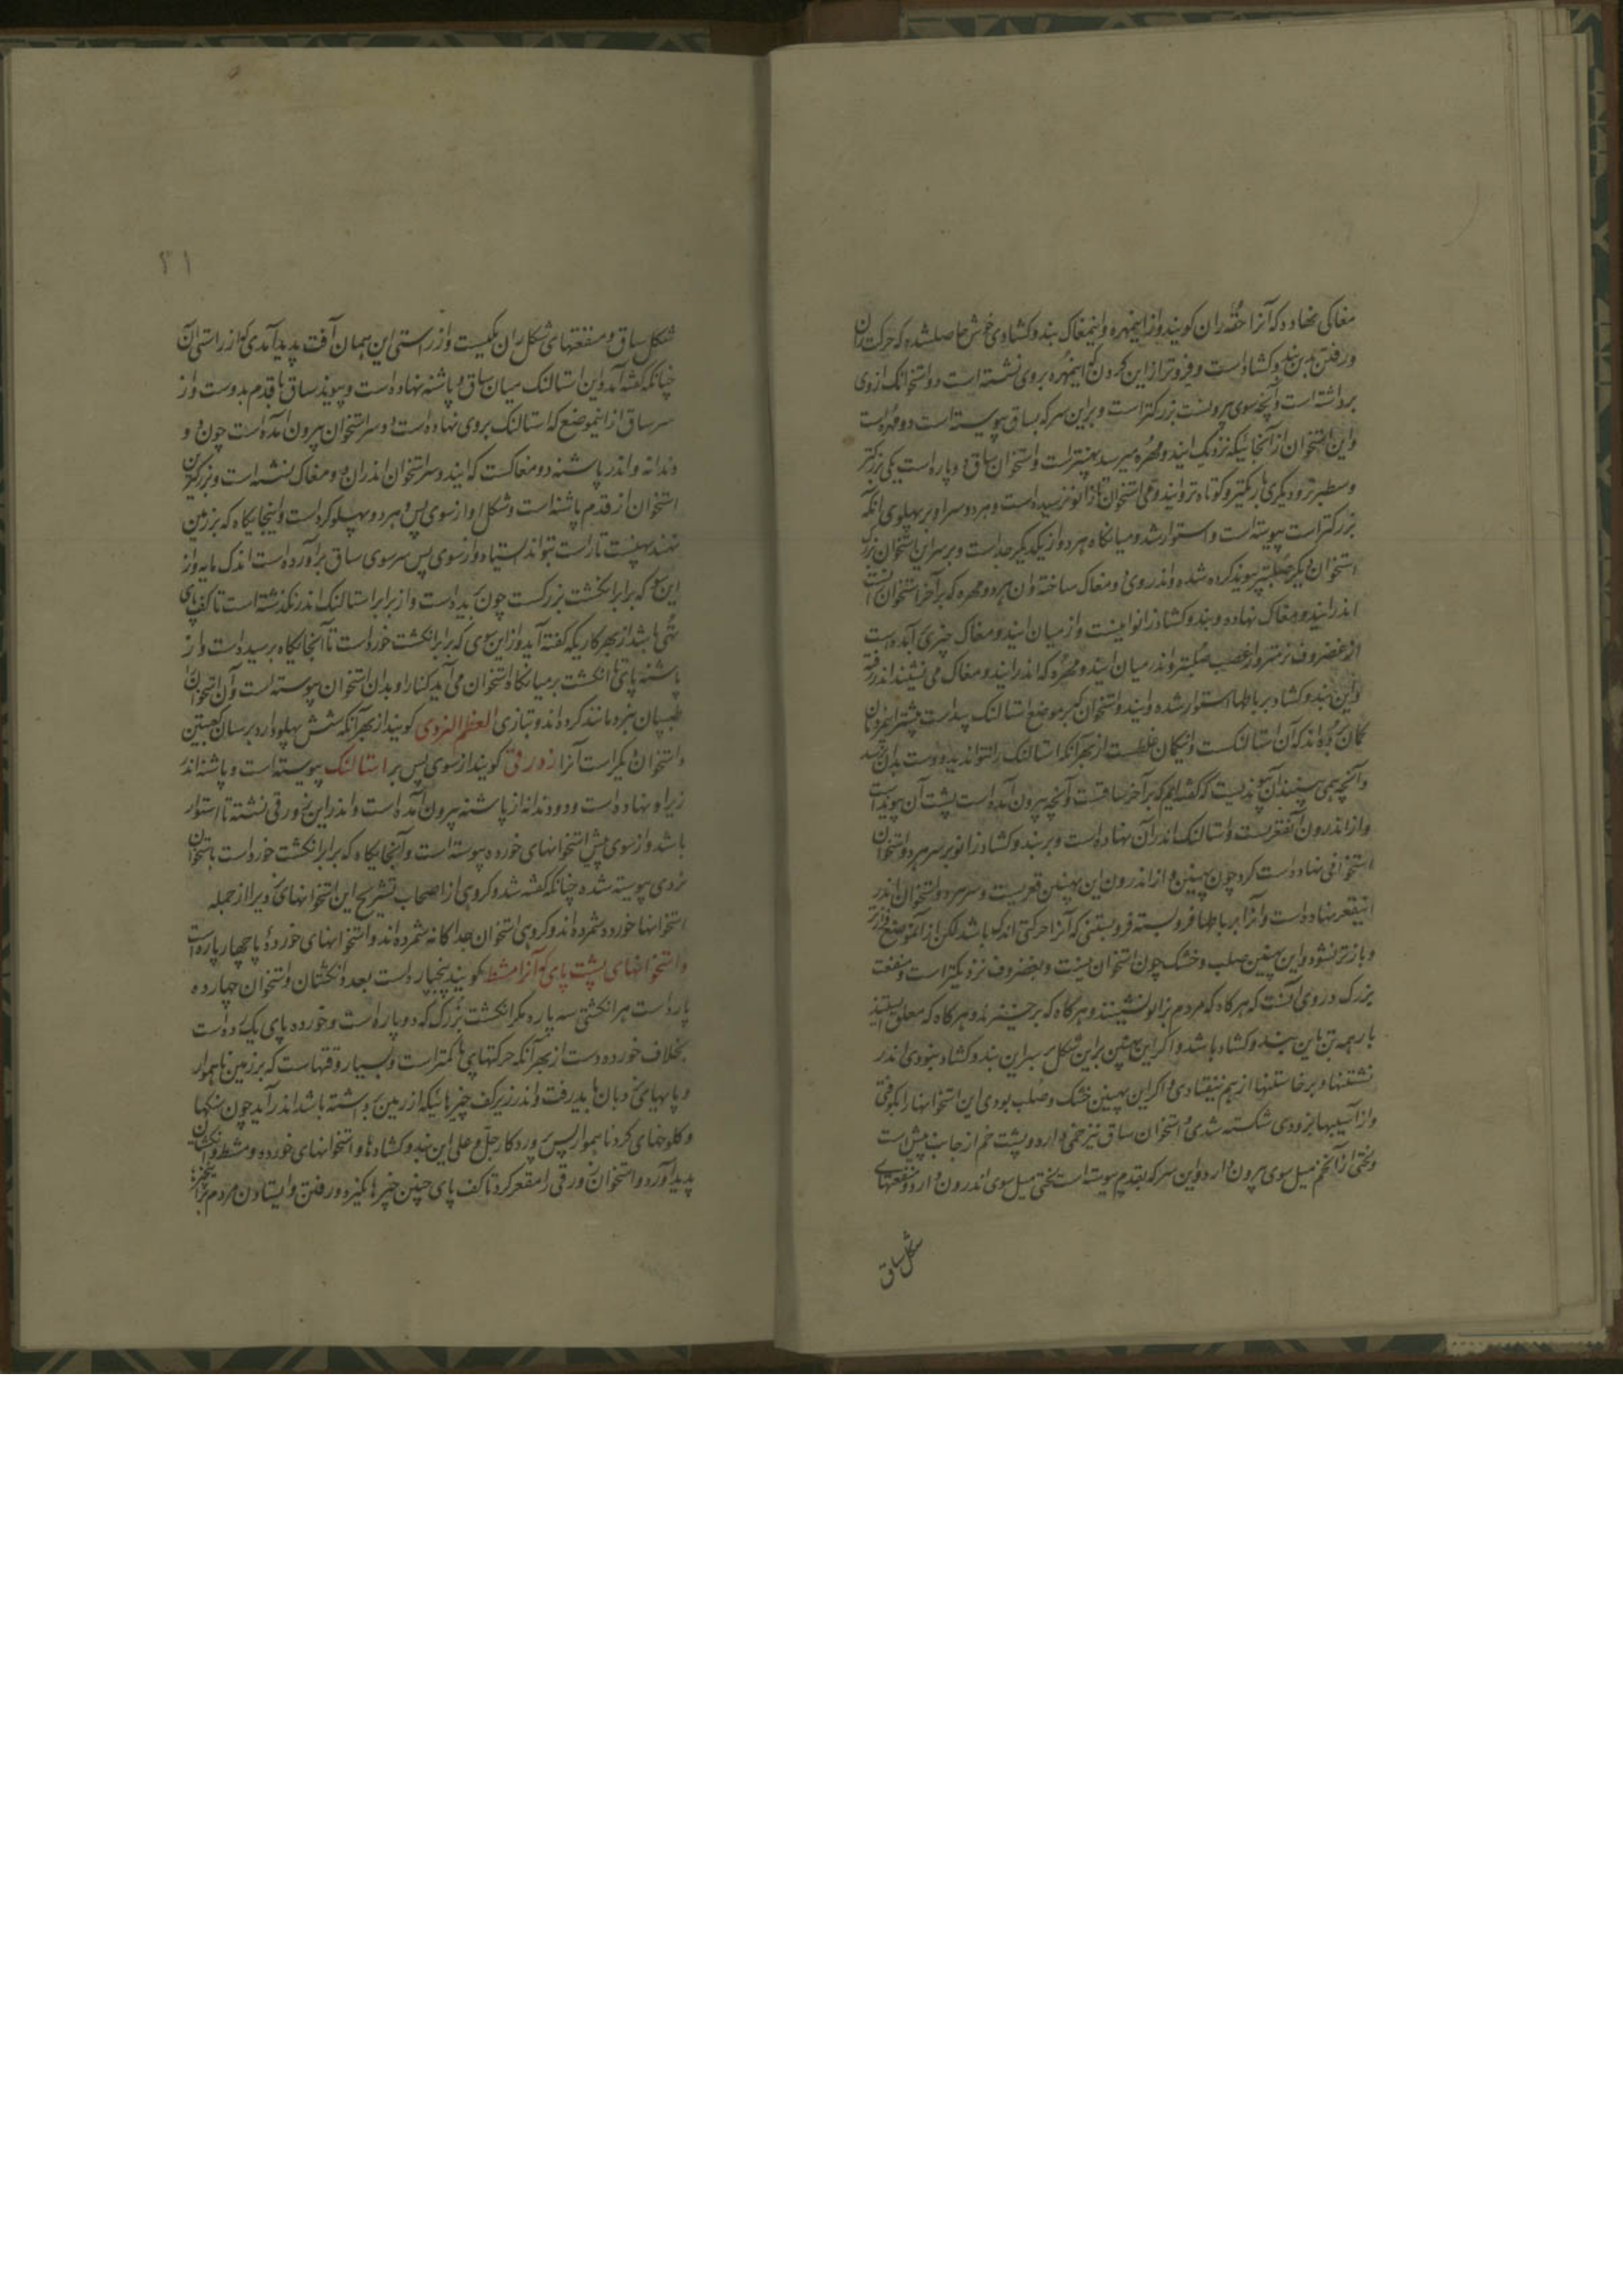 مغاکی نهاده که آنرا حقه ران گویند و از اینمهره و اینمغاک بند و گشادی خوش حاصل شده که حرکت ران
و رفتن بدین بند و گشادست و فروتر ازین گردن که اینمهره بروی نشسته است دو استخوانک از وی
برداشته است و آنچه سوی بیرونست بزرگتر است و برین سر که بساق پیوسته است دو مهره است
و این استخوان از آنجائیکه نزدیک ایندو مهره میرسد پهنتر است و استخوان ساق دو پاره است یکی بزرگتر
و سطبرتر و دیگری باریکتر و کوتاه تر و ایندومی استخوان تا زانو نرسیده است و هر دو سر او بر پهلوی آنکه
بزرگتر است پیوسته است و استوار شده و میانگاه هر دو از یکدیگر جداست و بر سر این استخوان بزرگ
استخوان دیگر صلبتر پیوند کرده شده و اندر وی دو مغاک ساخته و آن هر دو مهره که بر آخر استخوان رانست
اندر ایندو مغاک نهاده و بند و گشاد زانو اینست و از میان ایندو مغاک چیزی برآمده است
از غضروف نرمتر و از عصب صلبتر و اندر میان ایندو مهره که اندر ایندو مغاک می نشیند اندر رفته
و این بند و گشاد بر باطها استوار شده و ایندو استخوان که بر موضع استالنک پیداست بیشتر مردمان
گمان برده اند که آن استالنکست و اینگمان غلطست از بهر آنکه استالنک را نتواند دید و دست بدان نرسد
و آنچه همی بینند آن پیوندیست که گفته ایم که بر آخر ساقست و آنچه بیرون آمده است پشت آن پیوند است
و از اندرون آن مقعرست و استالنک اندر آن نهاده است و بر بند و گشاد زانو بر سر هر دو استخوان
استخوانی نهاده است گرد چون پهنین و از اندرون این پهنین قعریست و سر هر دو استخوان اندر
اینقعر نهاده است و آنرا بر باطها فرو بسته فرو بستنی که آنرا حرکتی اندک باشد لکن از آنموضع فروتر
و بازتر نشود و این پهنین صلب و خشک چون استخوان نیست و بغضروف نزدیکتر است و منفعت
بزرگ در وی آنست که هرگاه که مردم بزانو نشینند و هرگاه که برخیزند و هرگاه که معلق ایستند
بار همه تن باین بند و گشاد باشد و اگر این پهنین برین شکل بر سر این بند و گشاد نبودی اندر
نشستنها و برخاستنها از هم بیفتادی و اگر این پهنین خشک و صلب بودی این استخوانها را بکوفتی
و از آسیبها بزودی شکسته شدی و استخوان ساق نیز خمی دارد و پشت خم از جانب پیش است
و لختی از آن خم میل سوی بیرون دارد و این سر که بقدم پیوسته است لختی میل سوی اندرون دارد و منفعتهای
شکل ساق
۳۱
شکل ساق و منفعتهای شکل ران یکیست و از راستی این همان آفت پدید آمدی که از راستی آن
چنانکه گفته آمد و این استالنک میان ساق و پاشنه نهاده است و پیوند ساق با قدم بدوست و از
سر ساق از اینموضع که استالنک بروی نهاده است دو سر استخوان بیرون آمده است چون دو
دندانه و اندر پاشنه دو مغاکست که ایندو سر استخوان اندر آن دو مغاک نشسته است و بزرگترین
استخوان از قدم پاشنه است و شکل او از سوی پس و هر دو پهلو گرد است و اینجایگاه که بر زمین
نهند پهنست تا راست بتواند ایستاد و از سوی پس سر سوی ساق برآورده است اندک مایه و از
این سو که برابر انگشت بزرگست چون بریده است و از برابر استالنک اندر نگذشته است تا کف پای
تهی باشد از بهر کاریکه گفته آید و از این سوی که برابر انگشت خرد است تا آنجایگاه رسیده است و از
پاشنه پای تا انگشت بر میانگاه استخوان می آید کنار او بدان استخوان پیوسته است و آن استخوانرا
طبیبان بنرد مانند کرده اند و بتازی العظم النردی گویند از بهر آنکه شش پهلو دارد بر سان کعبتین
و استخوان دیگر است آنرا زورقی گویند از سوی پس بر استالنک پیوسته است و پاشنه اندر
زیر او نهاده است و دو دندانه از پاشنه بیرون آمده است و اندر این زورقی نشسته تا استوار
باشد و از سوی پیش استخوانهای خورده پیوسته است و آنجایگاه که برابر انگشت خورد است باستخوان
نردی پیوسته شده چنانکه گفته شد و گروهی از اصحاب تشریح این استخوانهای نردیرا از جمله
استخوانها خورده شمرده اند و گروهی استخوان جداگانه شمرده اند و استخوانهای خورده پا چهار پاره است
و استخوانهای پشت پای که آنرا مشط گویند پنجپاره است بعدد انگشتان و استخوان چهارده
پاره است هر انگشتی سه پاره مگر انگشت بزرگ که دو پاره است و خورده پای یک رده است
بخلاف خورده دست از بهر آنکه حرکتهای پی ها کمتر است و بسیار وقتهاست که بر زمین ناهموار
و پایهای نردبان بباید رفت و اندر زیر کف چیزهائیکه از زمین برداشته باشد اندر آید چون سنگها
و کلوخهای گرد ناهموار پس پروردگار جل و علی این بند و گشادها و استخوانهای خورده و مشط و انگشتان
پدید آورد و استخوان زورقی را مقعر کرد تا کف پای چنین چیزها بگیرد و رفتن و ایستادن مردم بر آن چیزها